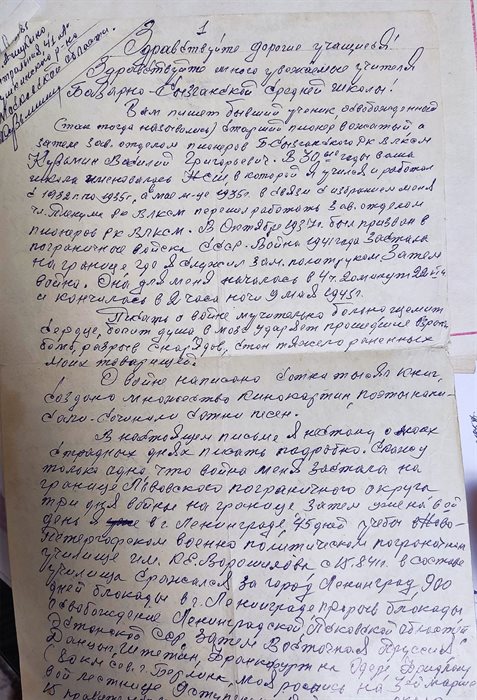 1
Московской области.
Здравствуйте дорогие учащиеся!
Здравствуйте много уважаемые учителя
Базарно-Сызганской средней школы.
Вам пишет бывший ученик, освобожденный
(так тогда назывались) старший пионервожатый, а
затем зав. отделом пионеров Б-Сызганского РК ВЛКСМ
Василий Григорьевич. В 30ые годы ваша
школа именовалась в которой я учился и работал
с 1932 по 1935г, а мае м-це 1935г. в связи с избранием меня
чл. Пленума РК ВЛКСМ перешел работать зав. отделом
пионеров РК ВЛКСМ. В Октябре 1937г. был призван в
пограничные войска СССР. Война 1941 года застала
на границе, где я служил зам. политруком. Затем
война. Она для меня началась в 4ч. 20 минут 22
и кончилась в 2 часа ночи 9 мая 1945г.
Писать о войне мучительно больно щемит
сердце, болит душа в мозг ударяет прошедшие взрывы
бомб, разрыв снарядов, стон тяжело раненных
моих товарищей.
О войне написано сотни тысяч книг,
создано множество кинокартин, поэты напи-
сали-сочинили сотни песен.
В настоящем письме я не стану о моих
страдных днях писать подробно. Скажу
только одно что война меня застала на
границе Львовского пограничного округа
три дня войны на границе затем уже на 8ой
день я в г. Ленинграде, 45 дней учебы в Ново-
Петергофском военно политическом пограничном
училище им. К.Е. Ворошилова с 15.8.41г. в составе
училища сражался за город Ленинград, 900
дней блокады в г. Ленинграде прорыв блокады
освобождение Ленинградской, Псковской областей
Эстонской ССР, затем Восточная Пруссия
Данциг, Штетин, Франкфурт на Одер
г. Берлин, моя роспись на